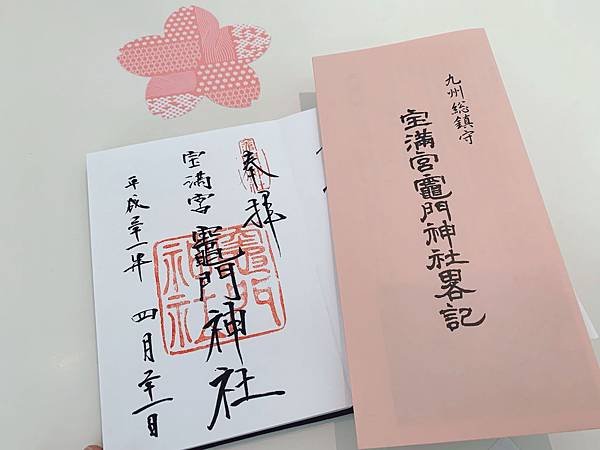 九州総鎮守
宝満宮竈門神社畧記
奉拝
宝満宮
竈門神社
平成三十一年 四月二十一日
竈門神社